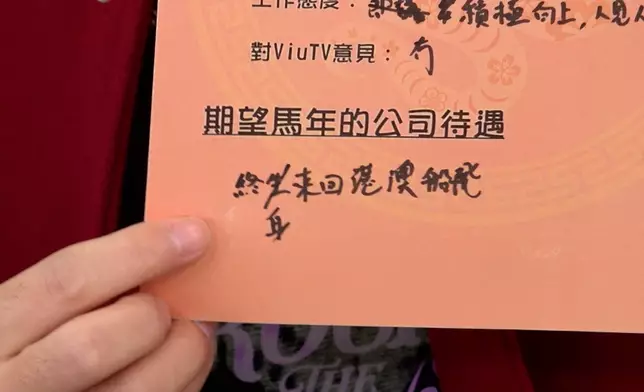 工作態度：非常積極向上，人見人
對ViuTV意見：冇
期望馬年的公司待遇
終生來回港澳船飛
身
ROCK
THE